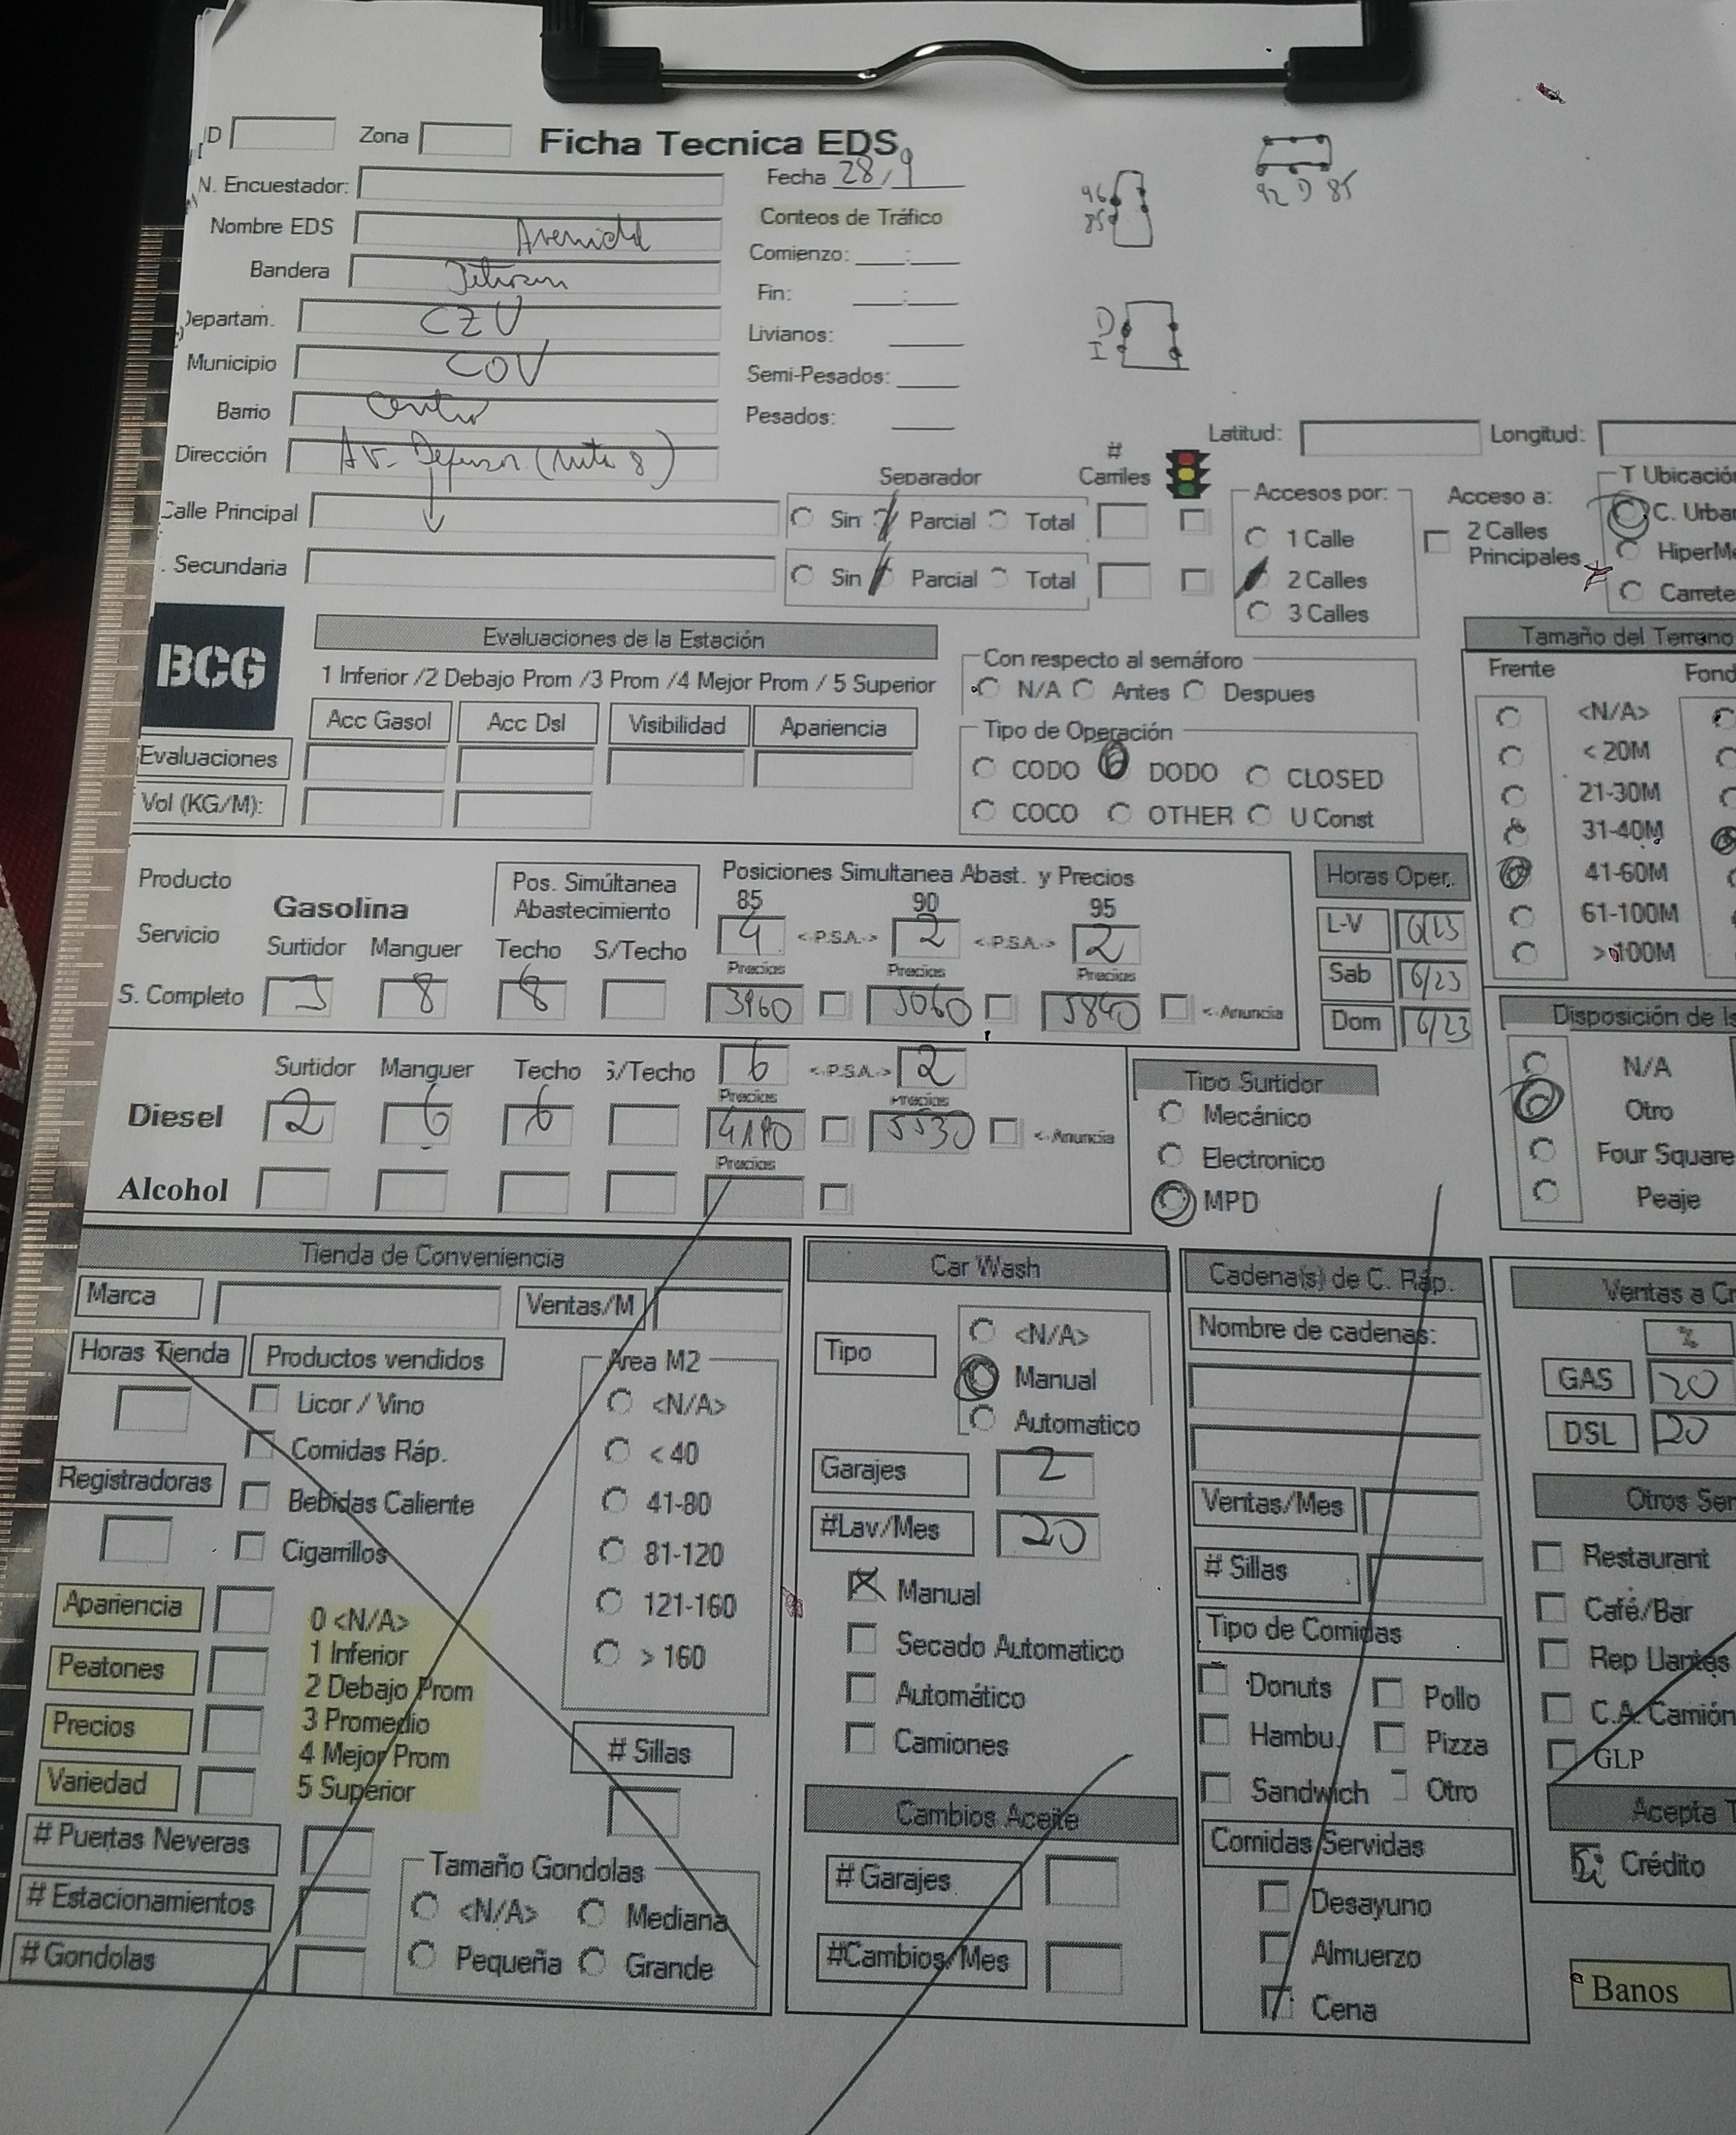 ID Zona Ficha Tecnica EDS
N. Encuestador: Fecha 28/9
Nombre EDS Avenida Conteos de Tráfico
Bandera Comienzo: __:__
Departam. CZU Fin: __:__
Municipio COV Livianos:
Barrio Centro Semi-Pesados:
Dirección Av. (Ruta 8) Pesados:
96
85
92 D 85
D
I
Latitud: Longitud:
Separador # Carriles
Calle Principal Sin Parcial Total
. Secundaria Sin Parcial Total
Accesos por:
1 Calle
2 Calles
3 Calles
Acceso a:
2 Calles
Principales
T Ubicación
C. Urba
HiperMe
Carrete
BCG
Evaluaciones de la Estación
1 Inferior /2 Debajo Prom /3 Prom /4 Mejor Prom / 5 Superior
Acc Gasol Acc Dsl Visibilidad Apariencia
Evaluaciones
Vol (KG/M):
Con respecto al semáforo
N/A Antes Despues
Tipo de Operación
CODO DODO CLOSED
COCO OTHER U Const
Tamaño del Terreno
Frente Fond
<N/A>
< 20M
21-30M
31-40M
41-60M
61-100M
>100M
Producto
Servicio
Gasolina
Pos. Simúltanea
Abastecimiento
Posiciones Simultanea Abast. y Precios
85 90 95
4 <-P.S.A.-> 2 <-P.S.A.-> 2
Surtidor Manguer Techo S/Techo Precios Precios Precios
S. Completo 3 8 8 3960 5060 5840 <-Anuncia
Horas Oper.
L-V 6/23
Sab 6/23
Dom 6/23
Surtidor Manguer Techo S/Techo 6 <-P.S.A.-> 2
Precios Precios
Diesel 2 6 6 4180 5530 <-Anuncia
Precios
Alcohol
Tipo Surtidor
Mecánico
Electronico
MPD
Disposición de Is
N/A
Otro
Four Square
Peaje
Tienda de Conveniencia
Marca Ventas/M
Horas Tienda Productos vendidos
Licor / Vino
Comidas Ráp.
Registradoras
Bebidas Caliente
Cigarrillos
Area M2
<N/A>
< 40
41-80
81-120
121-160
> 160
Apariencia
Peatones
Precios
Variedad
0 <N/A>
1 Inferior
2 Debajo Prom
3 Promedio
4 Mejor Prom
5 Superior
# Sillas
# Puertas Neveras
# Estacionamientos
# Gondolas
Tamaño Gondolas
<N/A> Mediana
Pequeña Grande
Car Wash
Tipo
<N/A>
Manual
Automatico
Garajes 2
#Lav/Mes 20
Manual
Secado Automatico
Automático
Camiones
Cambios Aceite
# Garajes
#Cambios/Mes
Cadena(s) de C. Ráp.
Nombre de cadenas:
Ventas/Mes
# Sillas
Tipo de Comidas
Donuts Pollo
Hambu. Pizza
Sandwich Otro
Comidas Servidas
Desayuno
Almuerzo
Cena
Ventas a Cr
%
GAS 20
DSL 20
Otros Ser
Restaurant
Café/Bar
Rep Llantas
C.A. Camión
GLP
Acepta T
Crédito
Banos